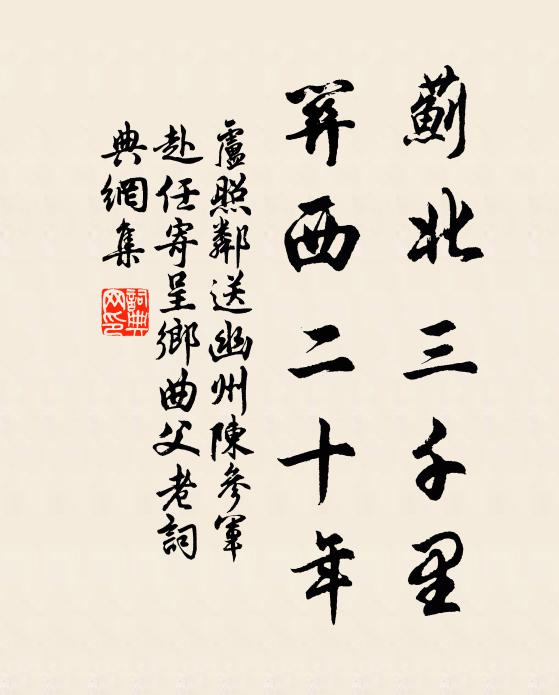 薊北三千里
關西二十年
盧照鄰送幽州陳參軍
赴任寄呈鄉曲父老詞
典網集
詞典
网印